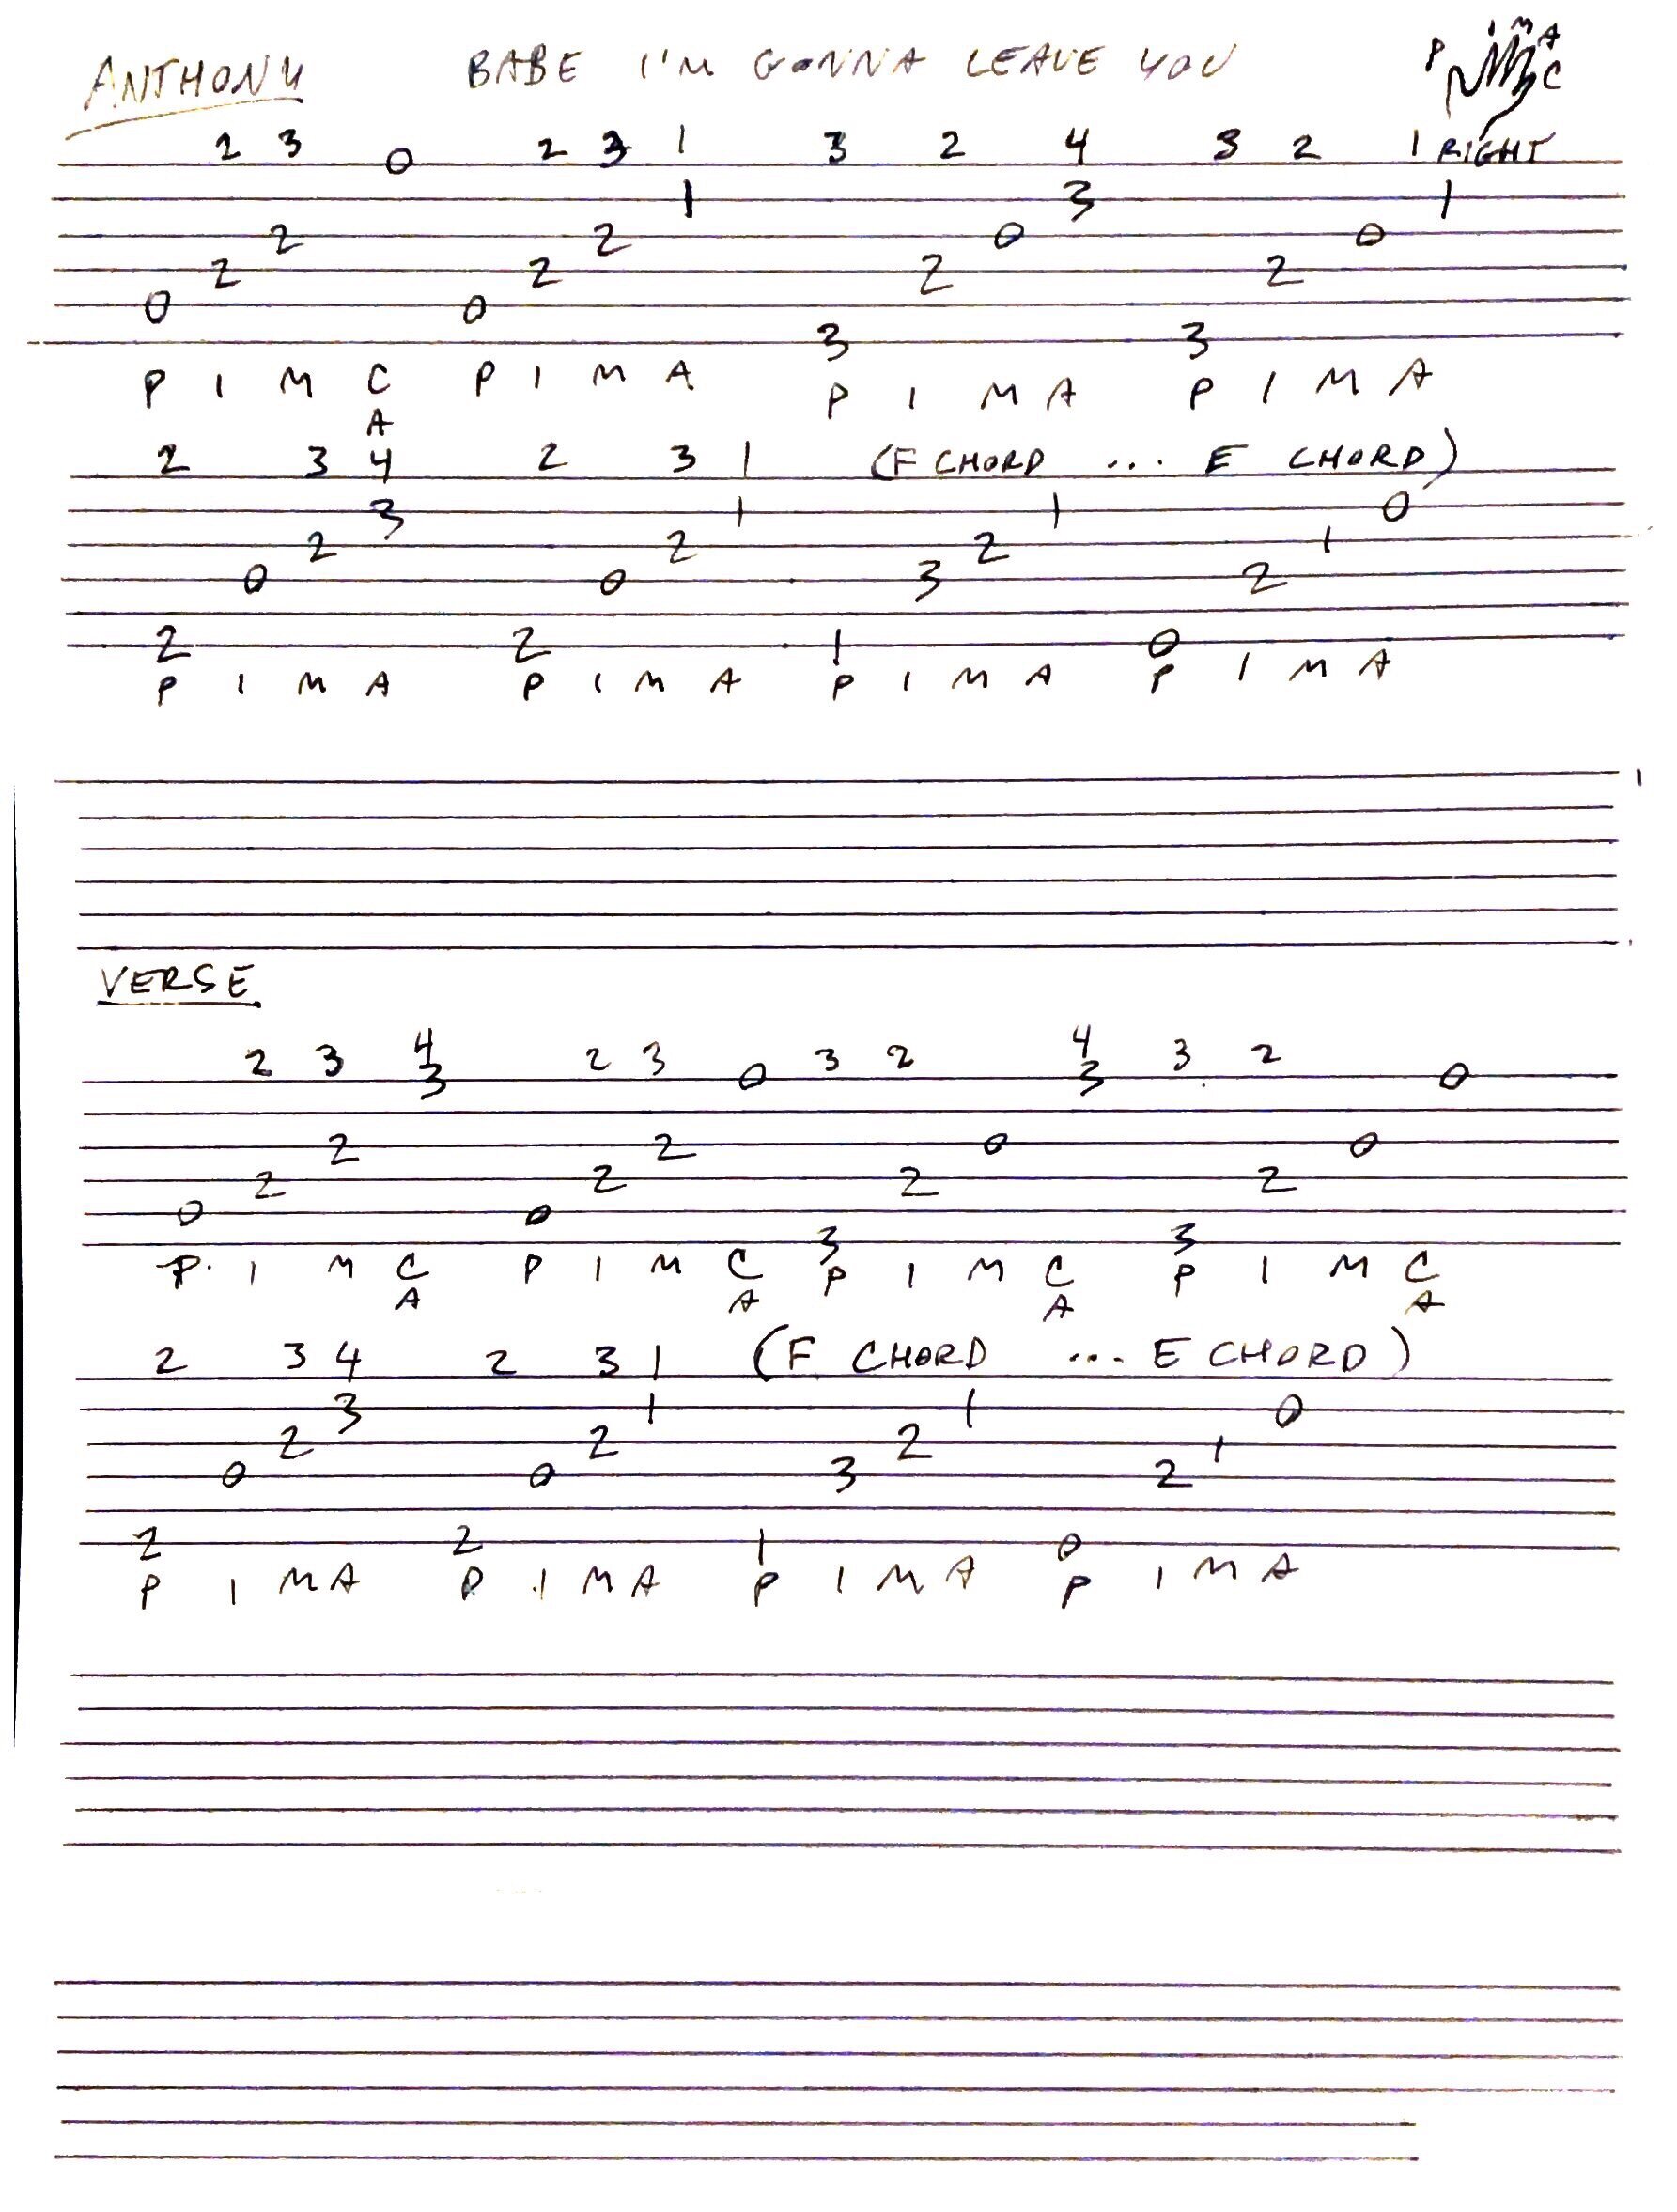 ANTHONY BABE I'M GONNA LEAVE YOU P I M A C
2 3 0 2 3 1 3 2 4 3 2 1 RIGHT
1 3 1
2 2 0 0
2 2 2 2
0 0
3 3
P I M C P I M A P I M A P I M A
A
2 3 4 2 3 1 (F CHORD ... E CHORD)
3 1 1 0
2 2 2 1
0 0 3 2
2 2 1 0
P I M A P I M A P I M A P I M A
VERSE
4 4
2 3 3 2 3 0 3 2 3 3 2 0
2 2 0 0
2 2 2 2
0 0
3 3
P. I M C P I M C P I M C P I M C
A A A A
2 3 4 2 3 1 (F CHORD ... E CHORD)
3 1 1 0
2 2 2 1
0 0 3 2
2 2 1 0
P I M A P I M A P I M A P I M A